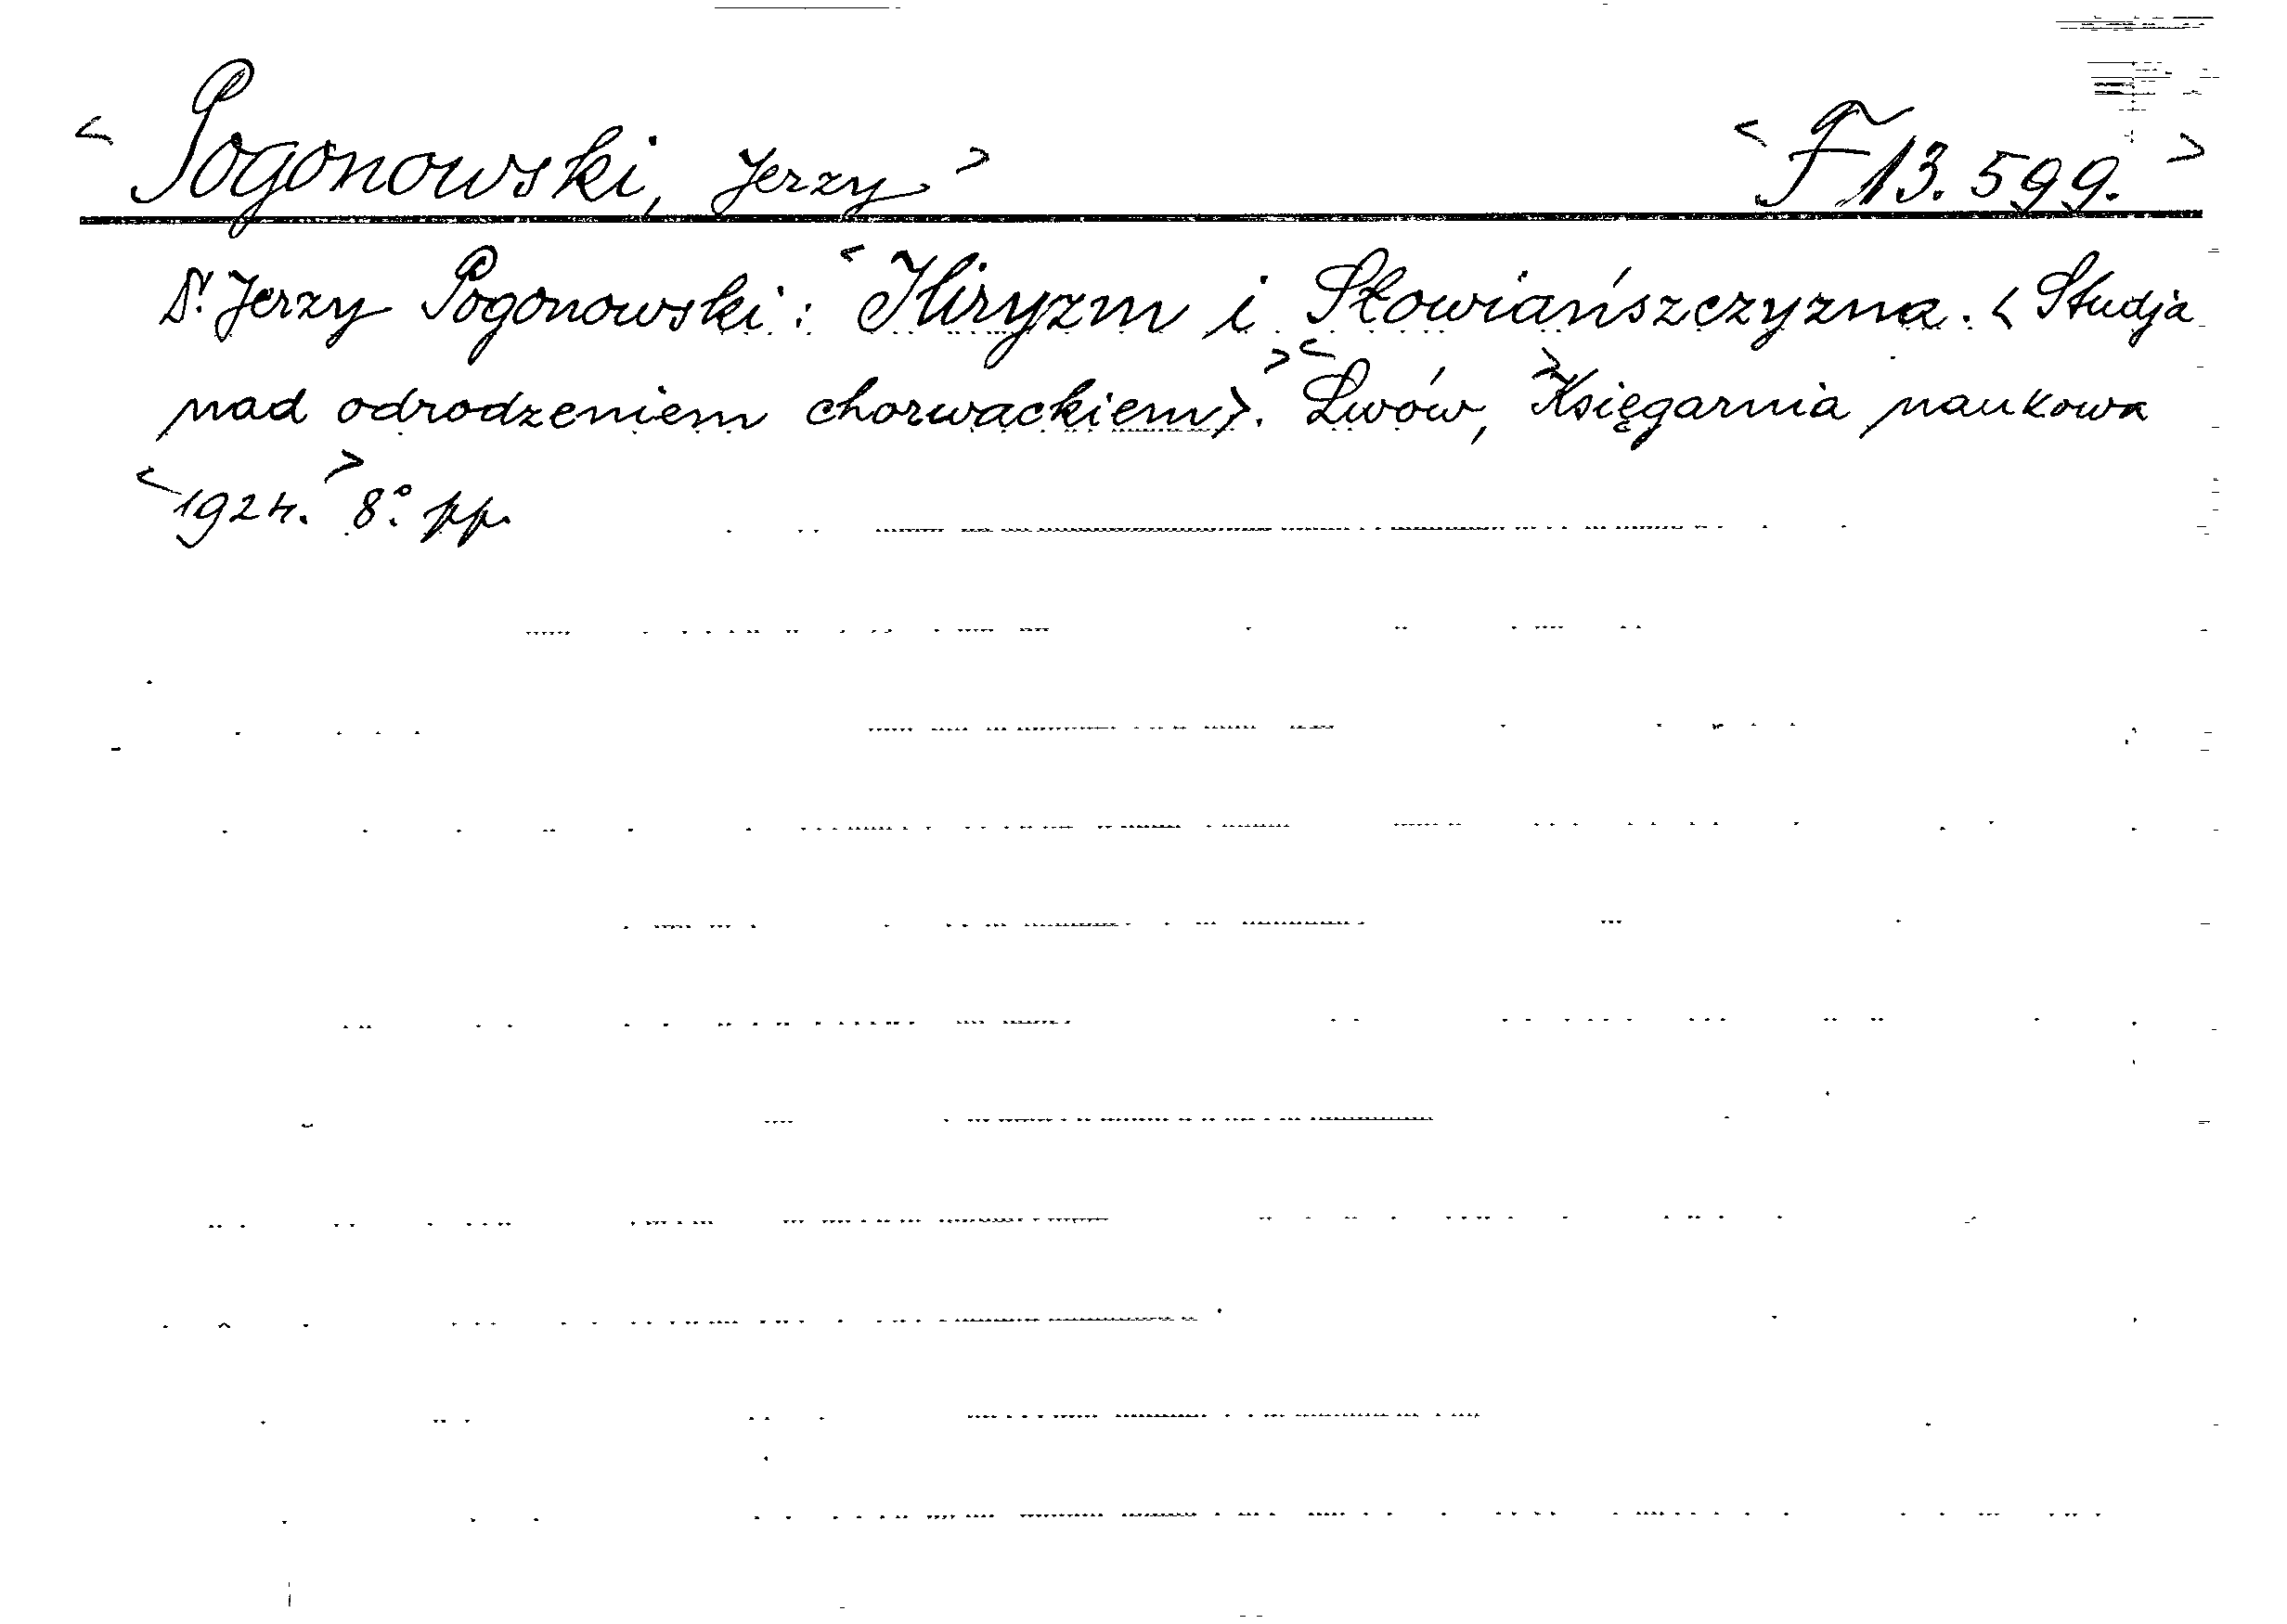 < Pogonowski, Jerzy > < F 13.599. >
Dr. Jerzy Pogonowski: < Iliryzm i Słowiańszczyzna. (Studja
nad odrodzeniem chorwackiem). > < Lwów, > Księgarnia naukowa
< 1924. > 8° pp.